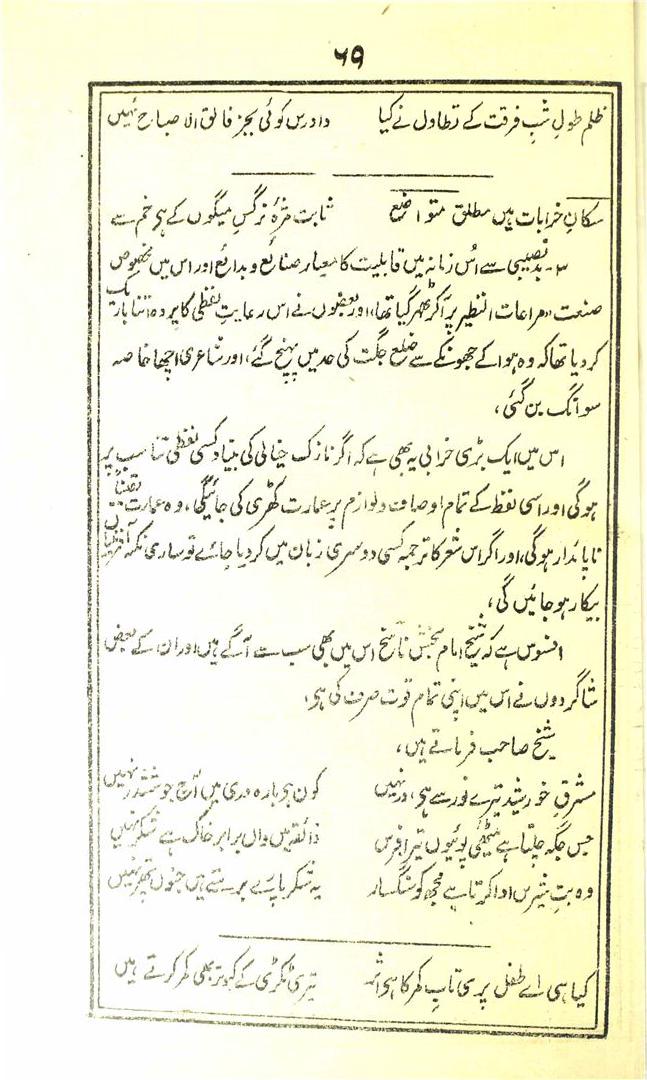 ۶۹
ظلم طولِ شبِ فرقت کے تطاول نے کیا دادرس کوئی بجز فالق الاصباح نہیں
سکانِ خرابات ہیں مطلق متواضع ثابت مژۂ نرگسِ میگوں کے ہی خم سے
۳۔ بدنصیبی سے اُس زمانہ میں قابلیت کا معیار صنائع و بدائع اور اس میں مخصوص
صنعت "مراعات النظیر پر آکر ٹھہر گیا تھا، اور بعضوں نے اس رعایتِ لفظی کا پردہ اتنا باریک
کر دیا تھا کہ وہ ہوا کے جھونکے سے ضلع جگت کی حد میں پہنچ گئے، اور شاعری اچھا خاصہ
سوانگ بن گئی،
اس میں ایک بڑی خرابی یہ بھی ہے کہ اگر نازک خیالی کی بنیاد کسی لفظی تناسب پر
ہوگی اور اسی لفظ کے تمام اوصاف و لوازم پر عمارت کھڑی کی جائیگی، وہ عمارت یقیناً
ناپائدار ہوگی، اور اگر اس شعر کا ترجمہ کسی دوسری زبان میں کر دیا جائے تو ساری نکتہ آفرینیاں
بیکار ہو جائیں گی،
افسوس ہے کہ شیخ امام بخش ناسخ اس میں بھی سب سے آگے ہیں اور ان کے بعض
شاگردوں نے اس میں اپنی تمام قوت صرف کی ہی،
شیخ صاحب فرماتے ہیں،
مشرقِ خورشید تیرے نور سے ہی، در نہیں کون ہی بارہ دری میں آج جو ششدر نہیں
جس جگہ چلتا ہے میٹھی پوئیوں تیرا فرس ذائقہ میں واں برابر خاک ہے شکر نہیں
وہ بتِ شیریں ادا کرتا ہے مجھ کو سنگسار یہ شکر پارے برستے ہیں جنوں پتھر نہیں
کیا ہی اے طفل پری تاب گھر کا ہی اثر تیری ٹکڑی کے کبوتر بھی گھر کرتے ہیں